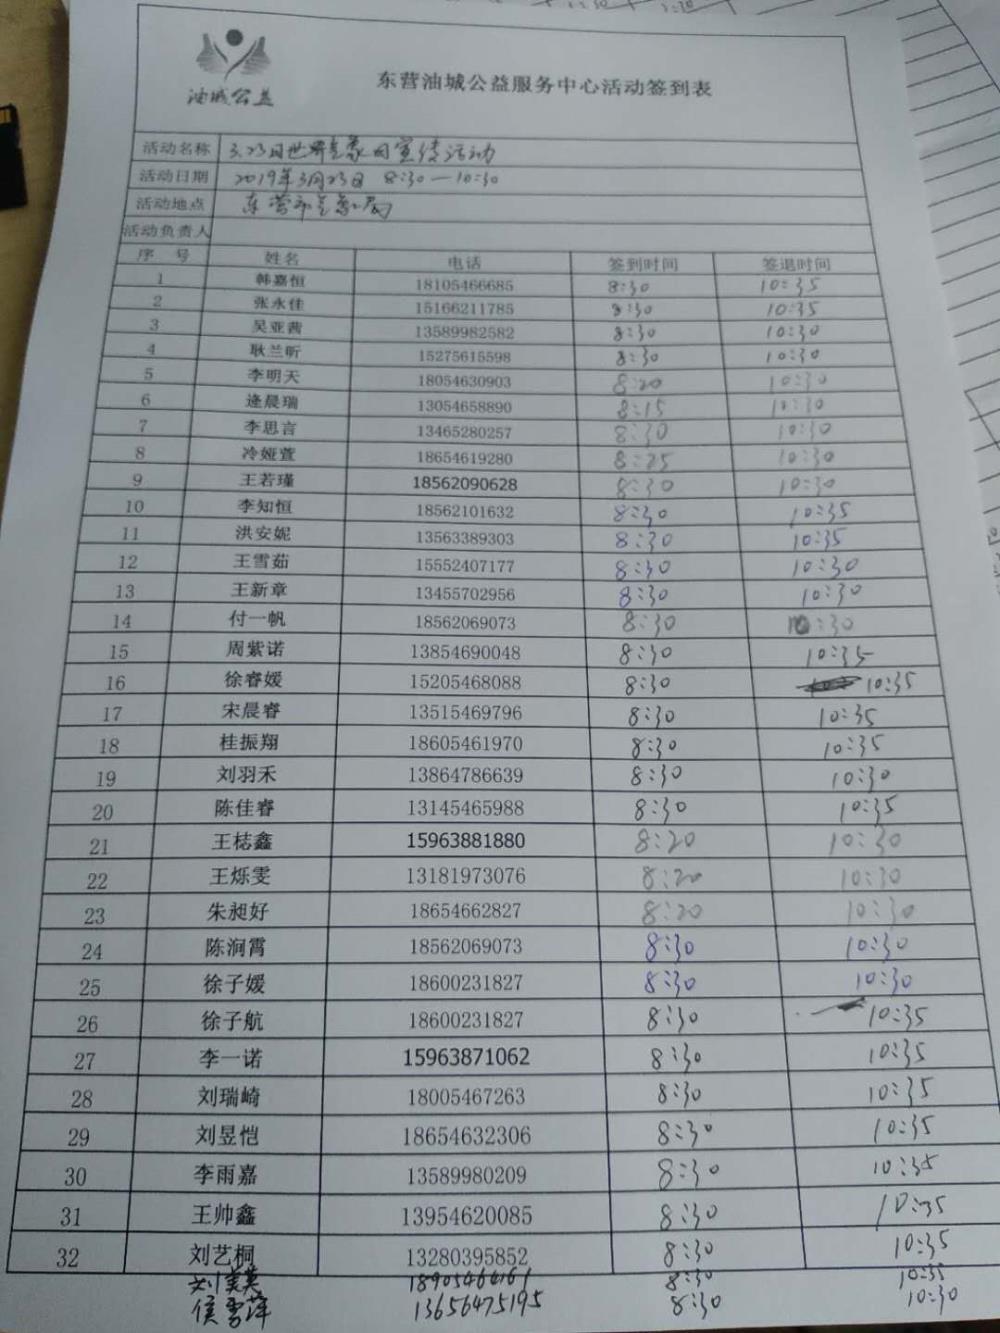 油城公益
东营油城公益服务中心活动签到表
活动名称 3.23日世界气象日宣传活动
活动日期 2019年3月23日 8:30—10:30
活动地点 东营市气象局
活动负责人
序 号 姓名 电话 签到时间 签退时间
1 韩嘉恒 18105466685 8:30 10:35
2 张永佳 15166211785 8:30 10:35
3 吴亚茜 13589982582 8:30 10:30
4 耿兰昕 15275615598 8:30 10:30
5 李明天 18054630903 8:20 10:30
6 逄晨瑞 13054658890 8:15 10:30
7 李思言 13465280257 8:30 10:30
8 冷娅萱 18654619280 8:25 10:30
9 王若瑾 18562090628 8:30 10:30
10 李知恒 18562101632 8:30 10:35
11 洪安妮 13563389303 8:30 10:35
12 王雪茹 15552407177 8:30 10:30
13 王新章 13455702956 8:30 10:30
14 付一帆 18562069073 8:30 10:30
15 周紫诺 13854690048 8:30 10:35
16 徐睿媛 15205468088 8:30 10:35
17 宋晨睿 13515469796 8:30 10:35
18 桂振翔 18605461970 8:30 10:35
19 刘羽禾 13864786639 8:30 10:30
20 陈佳睿 13145465988 8:30 10:35
21 王梽鑫 15963881880 8:20 10:30
22 王烁雯 13181973076 8:20 10:30
23 朱昶好 18654662827 8:20 10:30
24 陈涧霄 18562069073 8:30 10:30
25 徐子媛 18600231827 8:30 10:30
26 徐子航 18600231827 8:30 10:35
27 李一诺 15963871062 8:30 10:35
28 刘瑞崎 18005467263 8:30 10:35
29 刘昱恺 18654632306 8:30 10:35
30 李雨嘉 13589980209 8:30 10:35
31 王帅鑫 13954620085 8:30 10:35
32 刘艺桐 13280395852 8:30 10:35
刘美英 18905464161 8:30 10:35
侯雪萍 13656475195 8:30 10:30